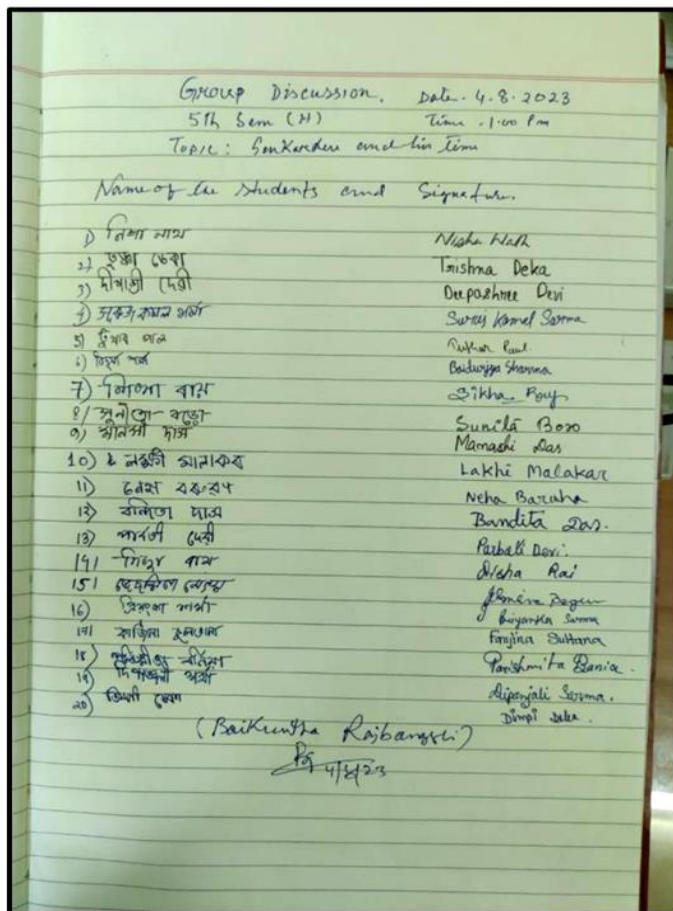 Group Discussion. Date. 4.8.2023
5th Sem (H) Time. 1.00 Pm
Topic: Sankardeva and his time
Name of the students and Signature.
1) নিশা নাথ Nisha Nath
2) তৃষ্ণা ডেকা Trishna Deka
3) দীপাশ্রী দেৱী Deepashree Devi
4) কমল শৰ্মা Suruj Kamal Sarma
5) তুষাৰ পাল Tushar Paul.
6) Baidurjya Sharma
7) ৰায় Sikha Roy
8) সুনীতা বড়ো Sunita Boro
9) দাস Mamashi Das
10) লক্ষী মালাকাৰ Lakhi Malakar
11) নেহা বৰুৱা Neha Baruha
12) বন্দিতা দাস Bandita Das.
13) পাৰ্বতী দেৱী Parbati Devi.
14) Disha Rai
15) Begum
16) প্ৰিয়ংকা শৰ্মা Priyanka Sarma
17) ফাৰ্জিনা চুলতানা Farjina Sultana
18) Parishmita Bania.
19) দিপাঞ্জলী শৰ্মা Dipanjali Sarma.
20) ডিম্পী ডেকা Dimpi Deka.
(Baikuntha Rajbangshi)
4/8/23